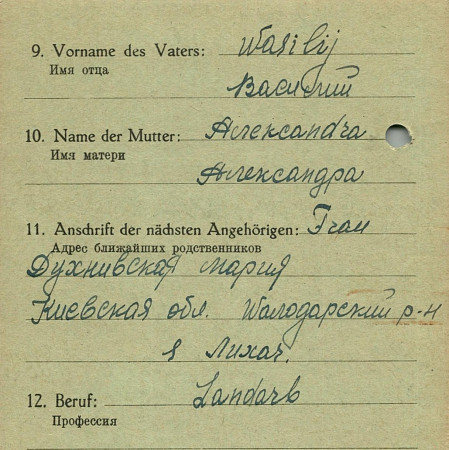 9. Vorname des Vaters: Wasilij
Имя отца
Василий
10. Name der Mutter: Alexandra
Имя матери
Александра
11. Anschrift der nächsten Angehörigen: Frau
Адрес ближайших родственников
Духнивская Мария
Киевская обл. Володарский р-н
Лихач.
12. Beruf: Landarb
Профессия